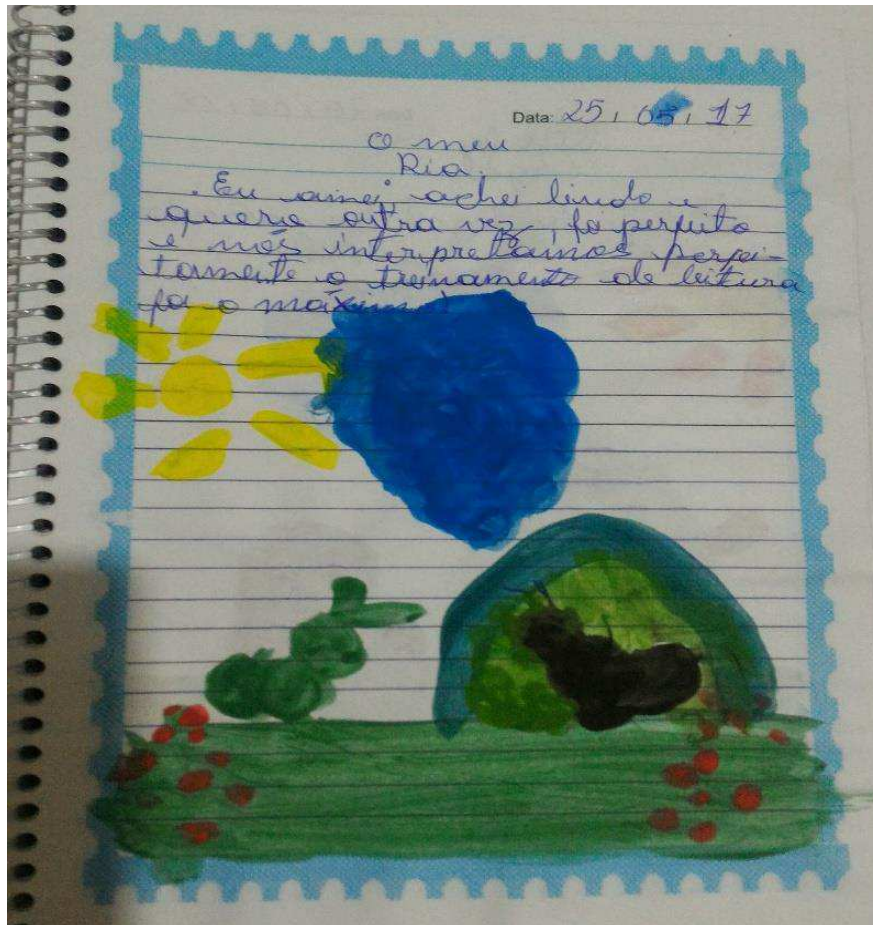 Data: 25 / 05 / 17
O meu
Dia.
Eu amei, achei lindo e
queria outra vez, foi perfeito
e nós interpretamos perfei-
tamente o treinamento de leitura
foi o máximo!